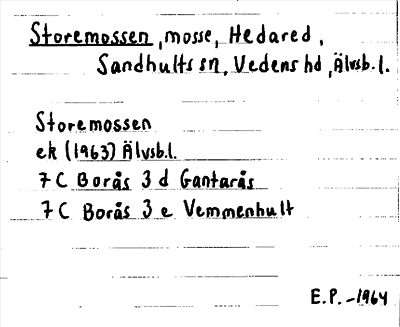 Storemossen, mosse, Hedared,
Sandhults sn, Vedens hd, Älvsb. l.
Storemossen
ek (1963) Älvsb. l.
7 C Borås 3 d Gantarås
7 C Borås 3 e Vemmenhult
E.P. -1964